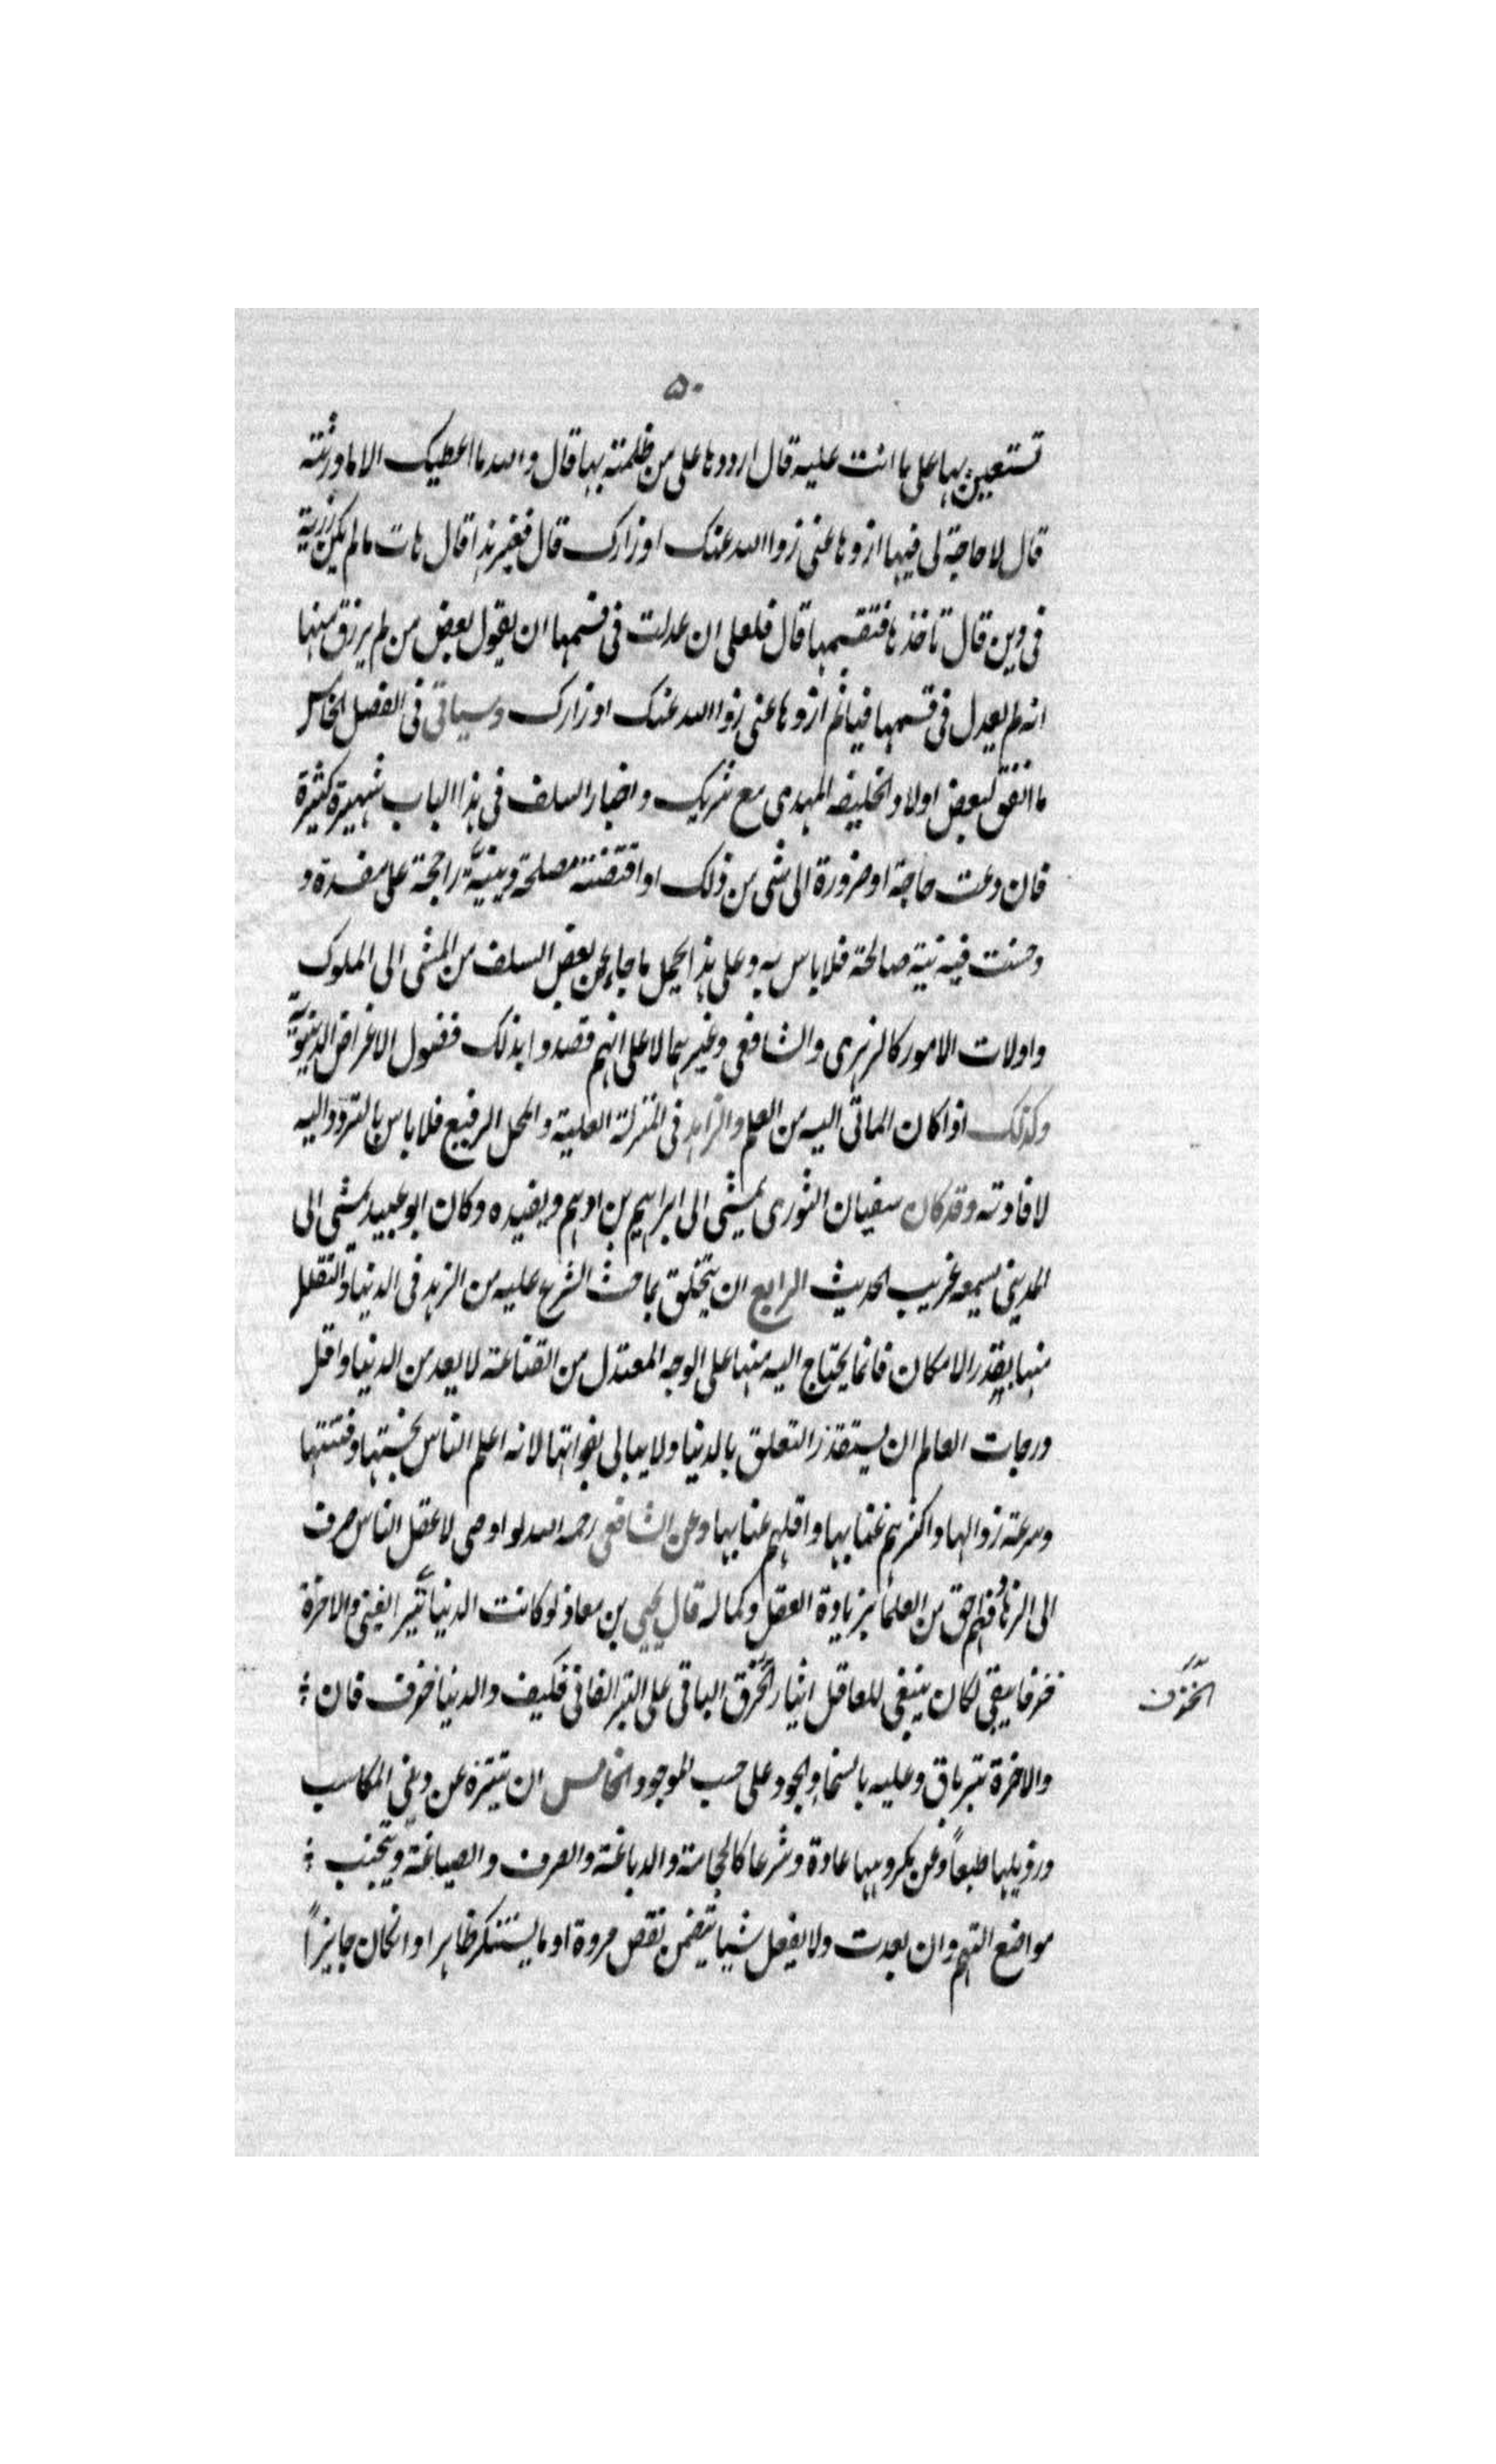 ۵۰
تستعين بها على ما انت عليه قال ارددها على من ظلمته بها قال والله ما اعطيك الا ما ورثته
قال لا حاجة لى فيها ازوها عنى زوا الله عنك اوزارك قال فغير هذا قال هات ما لم يكن رزية
فى دين قال تاخذها فتقسمها قال فلعلى ان عدلت فى قسمها ان يقول بعض من لم يرزق منها
انه لم يعدل فى قسمها فياثم ازوها عنى زوا الله عنك اوزارك وسياتى فى الفصل الخامس
ما اتفق لبعض اولاد الخليفه المهدى مع شريك واخبار السلف فى هذا الباب شهيرة كثيرة
فان دعت حاجة او ضرورة الى شى من ذلك او اقتضته مصلحة دينيّة راجحة على مفسدة و
وحسنت فيه نية صالحة فلا باس به وعلى هذا يحمل ما جاء عن بعض السلف من المشى الى الملوك
واولات الامور كالزهرى والشافعى وغيرهما لا على انهم قصدوا بذلك فضول الاغراض الدنيويّة
وكذلك اذا كان الماتى اليه من العلم والزهد فى المنزلة العلية والمحل الرفيع فلا باس بالتردد اليه
لافادته وقد كان سفيان الثورى يمشى الى ابراهيم بن ادهم ويفيده وكان ابو عبيد يمشى الى
المدينى يسمعه غريب الحديث الرابع ان يتخلق بما حث الشرع عليه من الزهد فى الدنيا والتقلل
منها بقدر الامكان فانما يحتاج اليه منها على الوجه المعتدل من القناعة لا يعد من الدنيا واقل
درجات العالم ان يستقذر التعلق بالدنيا ولا يبالى بفواتها لانه اعلم الناس بخستها وفتنتها
وسرعة زوالها واكثرهم عنا بها واقلهم غنا بها وعن الشافعى رحمه الله لو اوصى لاعقل الناس صرف
الى الزهاد فمن احق من العلما بزيادة العقل وكماله قال يحيى بن معاذ لو كانت الدنيا تبر ايفنى والاخرة
خزفا يبقى لكان ينبغى للعاقل ايثار الخزف الباقى على التبر الفانى فكيف والدنيا خزف فان
الخزف
والاخرة تبر باق وعليه بالسخا والجود على حسب الموجود الخامس ان يتنزه عن دنى المكاسب
ورذيلها طبعاً وعن مكروهها عادة وشرعا كالحجامة والدباغة والصرف والصياغة ويتجنب
مواضع التهم وان بعدت ولا يفعل شيا يتضمن نقص مروة او ما يستنكر ظاهرا وانكان جايزاً